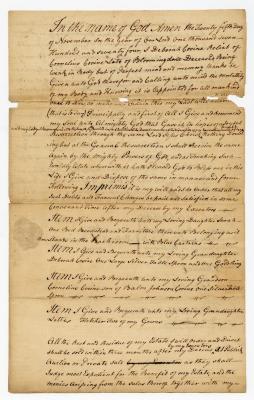 In the name of God Amen the Twenty fifth Day
of November In the Year of our Lord one thousand seven
hundred and seventy four I Deborah Cosine Relict of
Cornelius Cosine Late of Bloomingdale Deceased Being
weak in Body but of Perfect mind and memory thanks be
Given unto God therefore and Calling unto mind the mortality
of my Body and Knowing it is Appointed for all mankind
once to die, do make and ordain this my Last Will
that is to say Principally and first of all I Give and Recommend
my Soul unto Almighty God that Gave it
Resurrection through the
ing but at the General Resurrection I shall Receive the same
Again by the mighty Power of God, and as touching Such
Worldly Estate wherewith it hath Pleased God to Bless me in this
Life I Give and Dispose of the same in manner and form
following Imprimis it is my will and I do order that all my
Just Debts and Funeral Charges be paid and Satisfied in some
Convenient time after my Decease by my Executors
Item I Give and Bequeath unto my Loving Daughter Sarah
One Bed Bedstead and Furniture thereunto Belonging and
Stands in the with Blue Curtains
Item I Give and Bequeath unto my Loving Granddaughter
Deborah Cosine One Large Silver Table Spoon and one Gold Ring
Item I Give and Bequeath unto my Loving Grandson
Cornelius Cosine son of Balm Johnson Cosine one Silver Table
Spoon
Item I Give and Bequeath unto my Loving Granddaughter
Letitia one of my Gowns
All the Rest and Residue of my Estate I will order and Direct
shall be sold within three months after my Decease At Publick
Auction or Private Sale as they shall
Judge most Expedient for the Benefit of my Estate, and the
monies Arising from the Sales thereof together with my